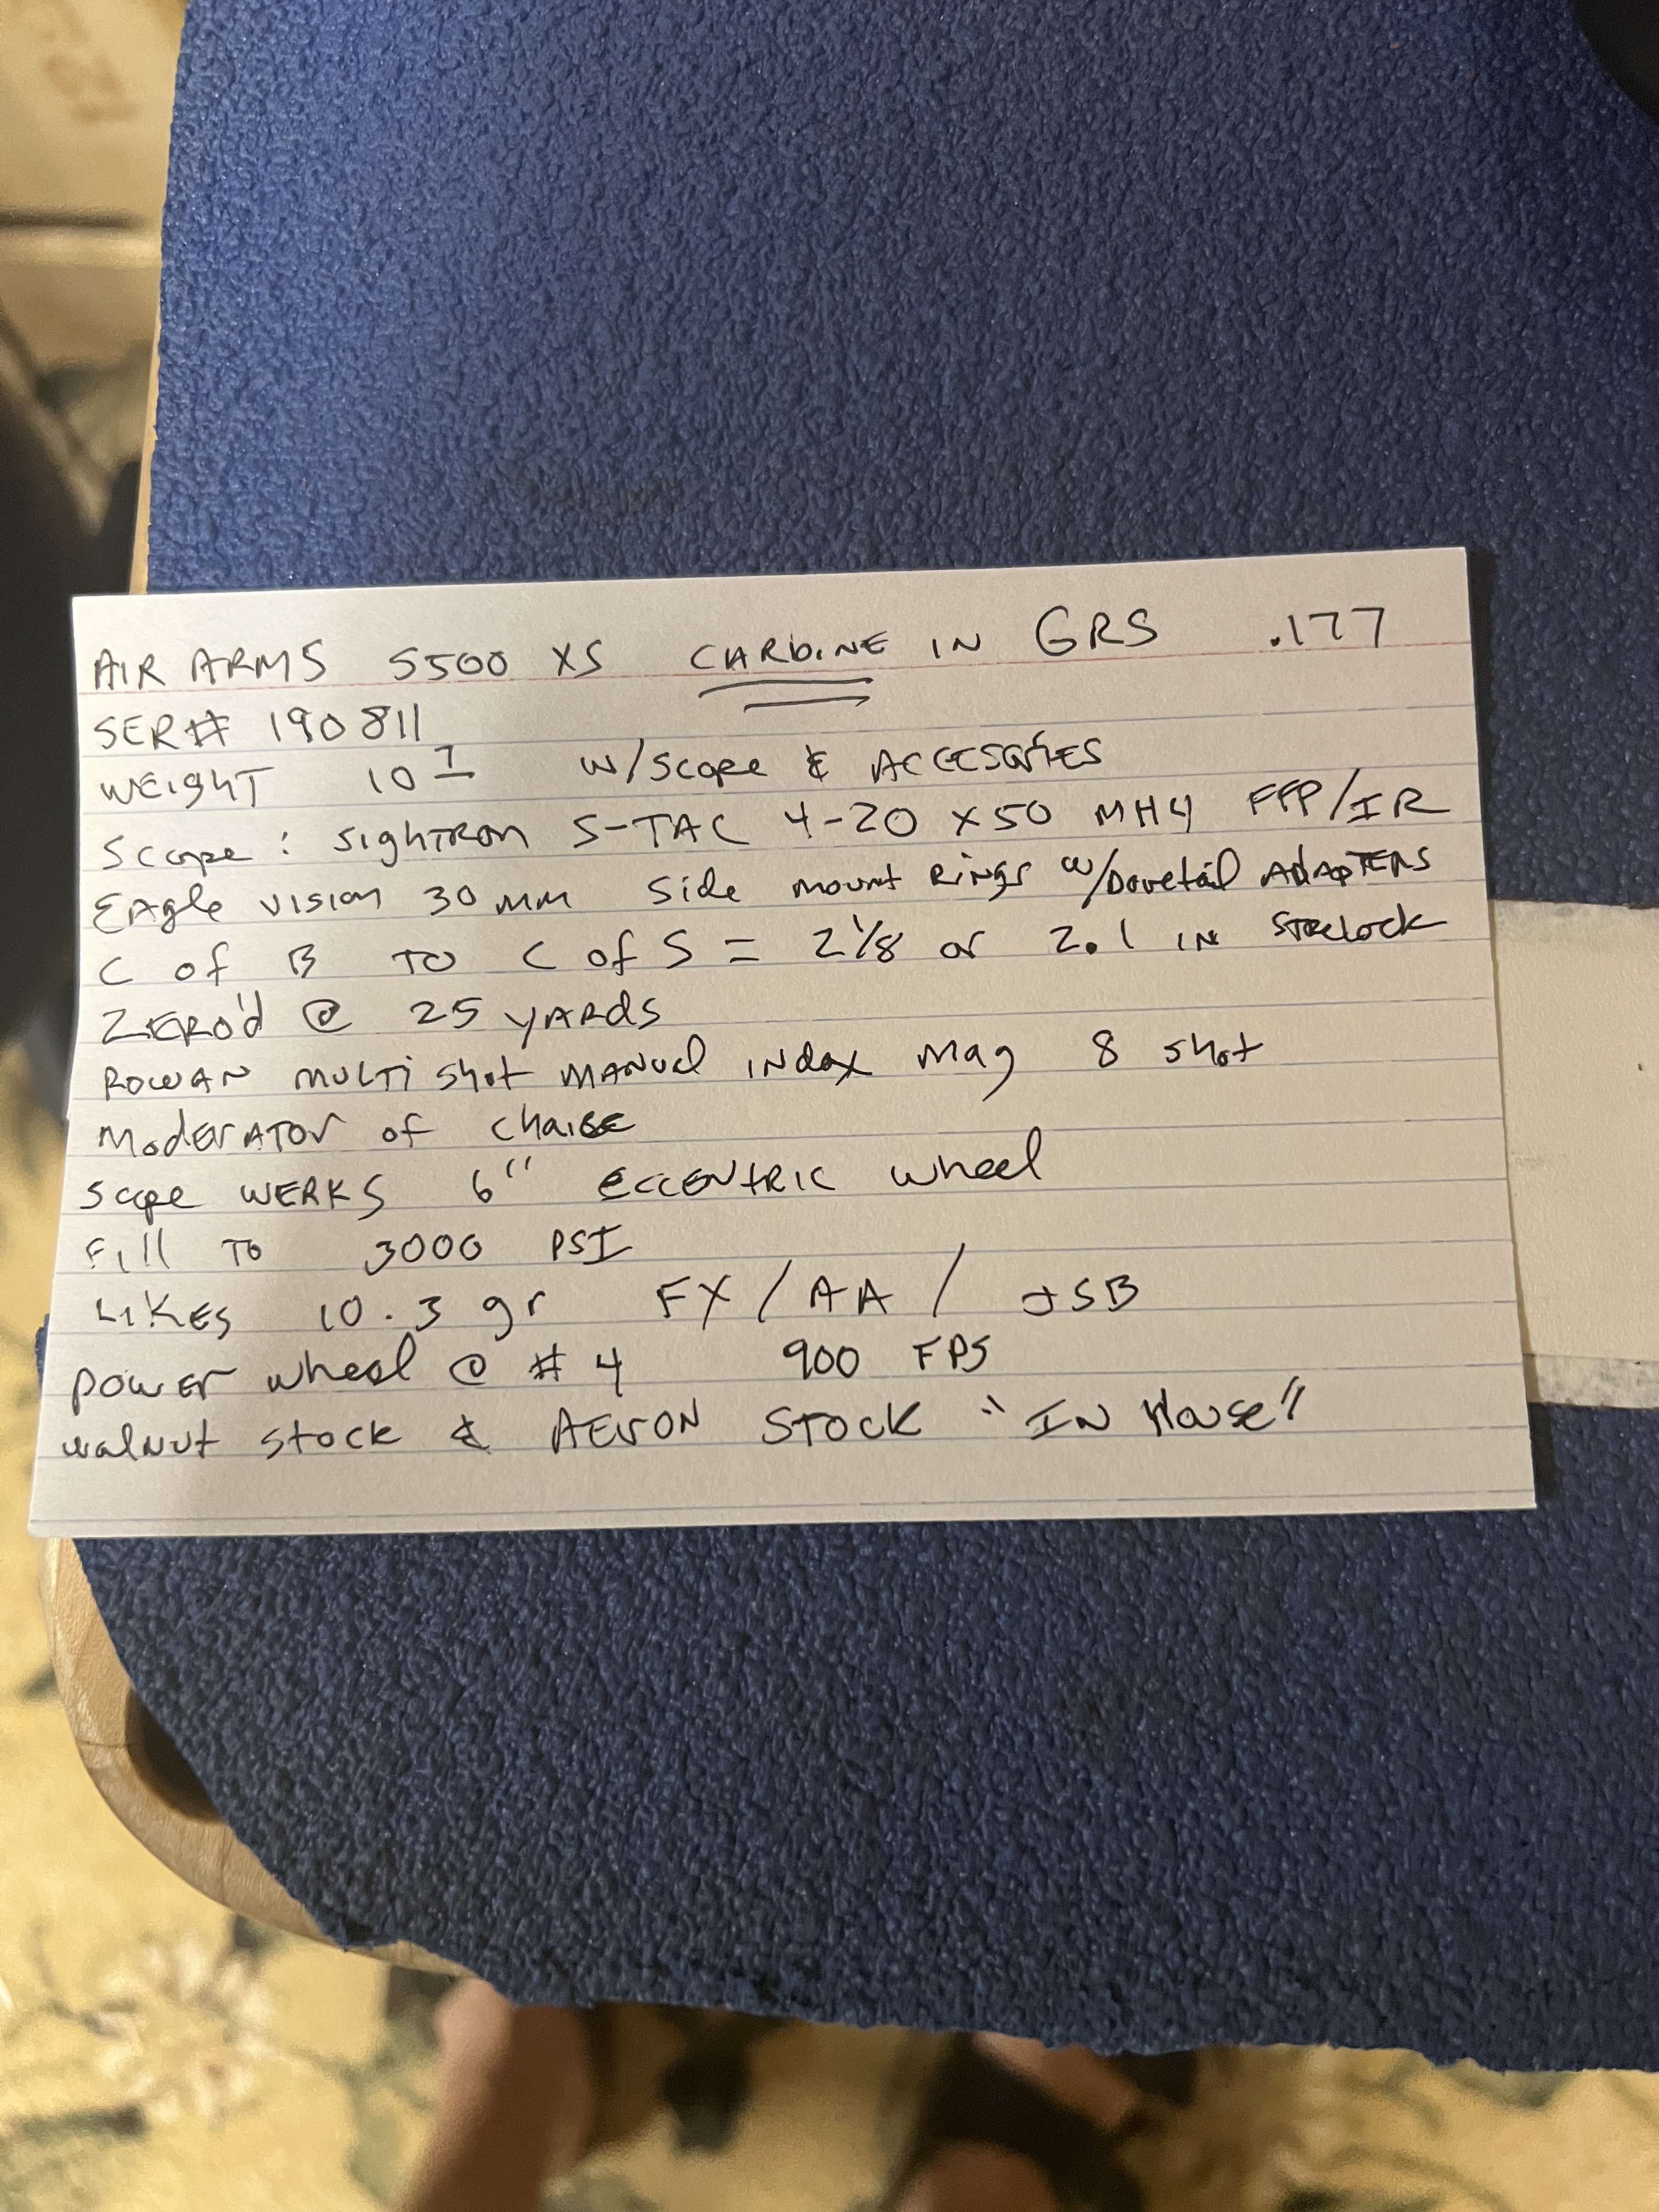 AIR ARMS S500 XS CARBINE IN GRS .177
SER# 190811
WEIGHT 10 W/SCOPE & ACCESSORIES
SCOPE: SIGHTRON S-TAC 4-20 X50 MH4 FFP/IR
EAGLE VISION 30 MM SIDE MOUNT RINGS W/DOVETAIL ADAPTERS
C of B TO C of S = 2 1/8 or 2.1 IN STRELOCK
ZERO'd @ 25 YARDS
ROWAN MULTI SHOT MANUAL INDEX MAG 8 SHOT
MODERATOR of CHOICE
SCOPE WERKS 6" ECCENTRIC WHEEL
FILL TO 3000 PSI
LIKES 10.3 gr FX / AA / JSB
POWER WHEEL @ #4 900 FPS
WALNUT STOCK & STOCK "IN HOUSE"